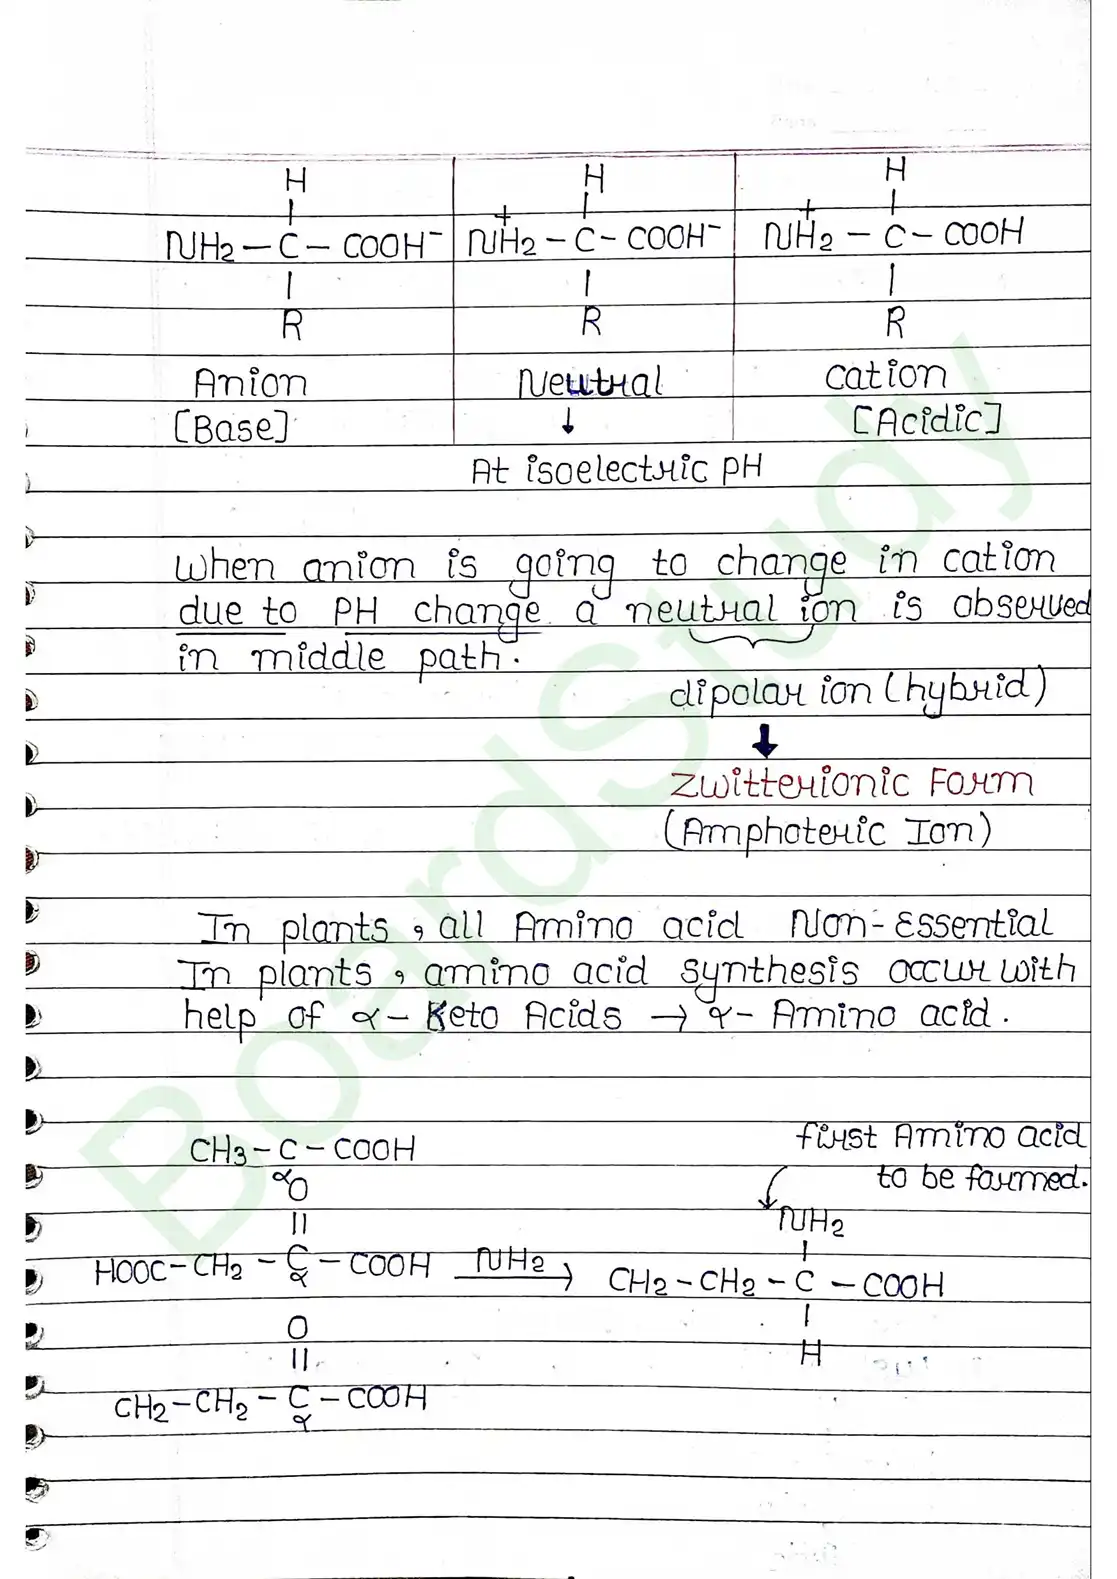 H H H
| + | + |
NH2 – C – COOH⁻ NH2 – C – COOH⁻ NH2 – C – COOH
| | |
R R R
Anion Neutral cation
[Base] ↓ [Acidic]
At isoelectric pH
When anion is going to change in cation
due to PH change a neutral ion is observed
in middle path.
dipolar ion (hybrid)
↓
Zwitterionic Form
(Amphoteric Ion)
In plants, all Amino acid Non-Essential
In plants, amino acid synthesis occur with
help of α- Keto Acids → α- Amino acid.
first Amino acid
CH3 – C – COOH
to be formed.
αO
|| NH2
HOOC – CH2 – C – COOH NH2 → |
α CH2 – CH2 – C – COOH
O |
|| H
CH2 – CH2 – C – COOH
α
BoardStudy